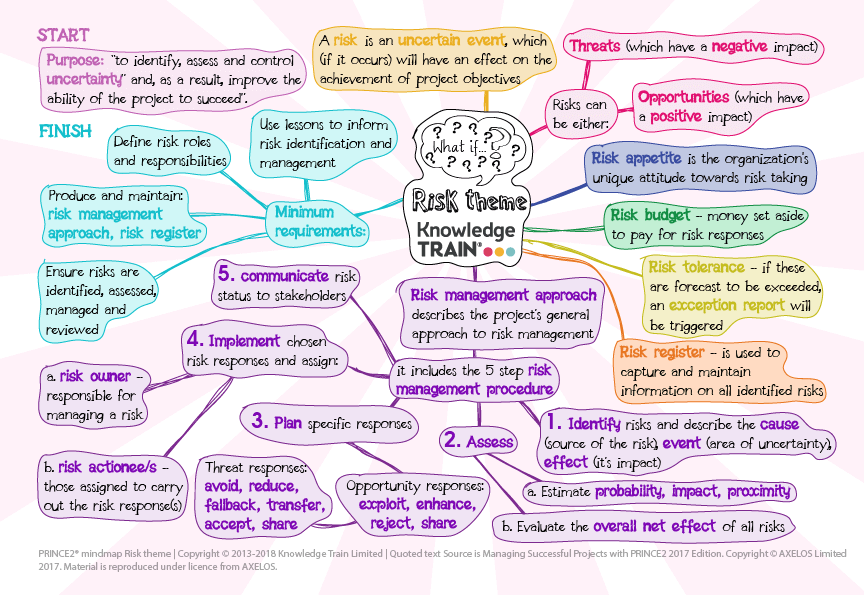 START
Purpose: "to identify, assess and control
uncertainty" and, as a result, improve the
ability of the project to succeed".
A risk is an uncertain event, which
(if it occurs) will have an effect on the
achievement of project objectives
Threats (which have a negative impact)
Risks can
be either:
Opportunities (which have
a positive impact)
What if...
? ? ? ? ? ? ? ? ? ? ?
Risk theme
Knowledge
TRAIN®
Risk appetite is the organization's
unique attitude towards risk taking
Risk budget – money set aside
to pay for risk responses
Risk tolerance – if these
are forecast to be exceeded,
an exception report will
be triggered
Risk register – is used to
capture and maintain
information on all identified risks
Risk management approach
describes the project's general
approach to risk management
it includes the 5 step risk
management procedure
1. Identify risks and describe the cause
(source of the risk), event (area of uncertainty),
effect (it's impact)
2. Assess
a. Estimate probability, impact, proximity
b. Evaluate the overall net effect of all risks
3. Plan specific responses
Opportunity responses:
exploit, enhance,
reject, share
Threat responses:
avoid, reduce,
fallback, transfer,
accept, share
4. Implement chosen
risk responses and assign:
a. risk owner –
responsible for
managing a risk
b. risk actionee/s –
those assigned to carry
out the risk response(s)
5. communicate risk
status to stakeholders
FINISH
Minimum
requirements:
Use lessons to inform
risk identification and
management
Define risk roles
and responsibilities
Produce and maintain:
risk management
approach, risk register
Ensure risks are
identified, assessed,
managed and
reviewed
PRINCE2® mindmap Risk theme | Copyright © 2013-2018 Knowledge Train Limited | Quoted text Source is Managing Successful Projects with PRINCE2 2017 Edition. Copyright © AXELOS Limited
2017. Material is reproduced under licence from AXELOS.